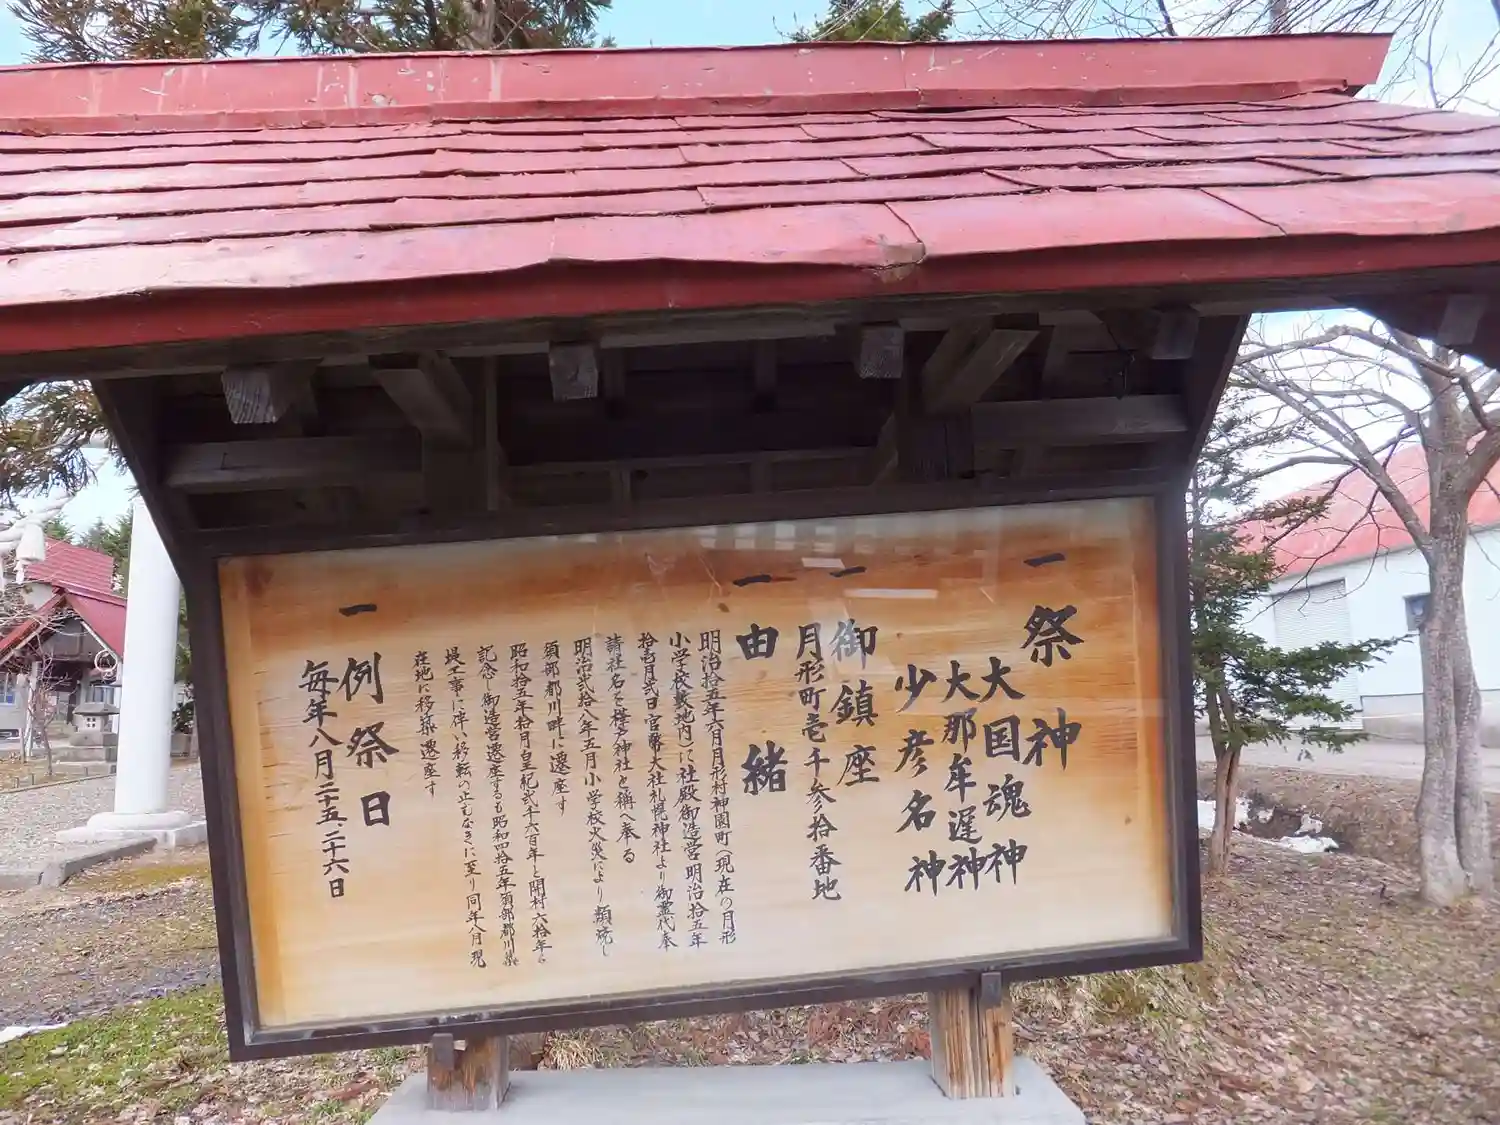 一 祭神
大国魂神
大那牟遅神
少彦名神
一 御鎮座
月形町壱千参拾番地
一 由緒
明治拾五年六月月形村神園町(現在の月形
小学校敷地内)に社殿御造営明治拾五年
拾壱月弐日官幣大社札幌神社より御霊代奉
請社名を樺戸神社と称へ奉る
明治弐拾八年五月小学校火災により類焼し
須部都川畔に遷座す
昭和拾五年拾月皇紀弐千六百年と開村六拾年に
記念し御造営遷座するも昭和四拾五年須部都川築
堤工事に伴い移転の止むなきに至り同年八月現
在地に移築遷座す
一 例祭日
毎年八月二十五、二十六日